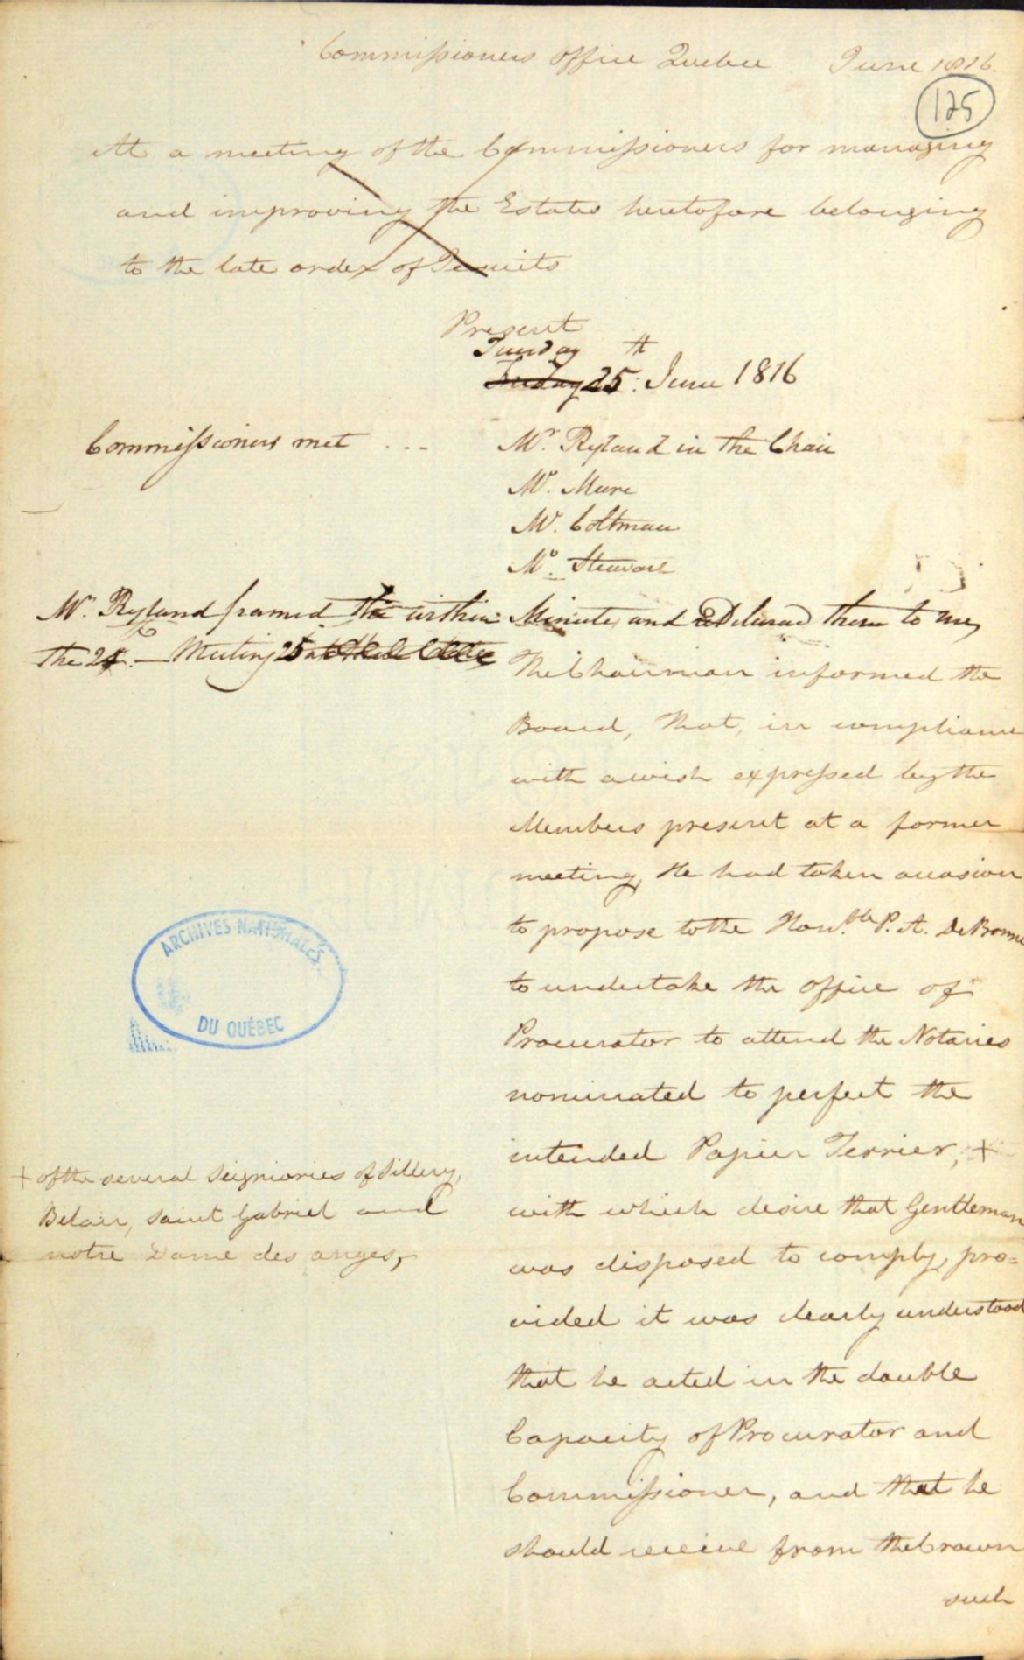 Commissioners office Quebec June 1816.
125
At a meeting of the Commissioners for managing
and improving the Estates heretofore belonging
to the late order of Jesuits
Present
Tuesday th
25: June 1816
Commissioners met ... Mr. Ryland in the Chair
Mr. Mure
Mr. Coltman
Mr. Stewart
Mr. Ryland framed the within Minutes and Delivered them to me,
the 25. - Meeting 25
The Chairman informed the
Board, that, in compliance
with a wish expressed by the
Members present at a former
meeting, He had taken occasion
to propose to the Honble P. A. De Bonne
to undertake the office of
Procurator to attend the Notaries
nominated to perfect the
intended Papier Terrier, +
with which desire that Gentleman
was disposed to comply, pro=
vided it was clearly understood
that he acted in the double
Capacity of Procurator and
Commissioner, and that he
should receive from the Crown
such
+ of the several Seigniories of Sillery,
Belair, Saint Gabriel and
notre Dame des anges,
ARCHIVES NATIONALES
DU QUÉBEC